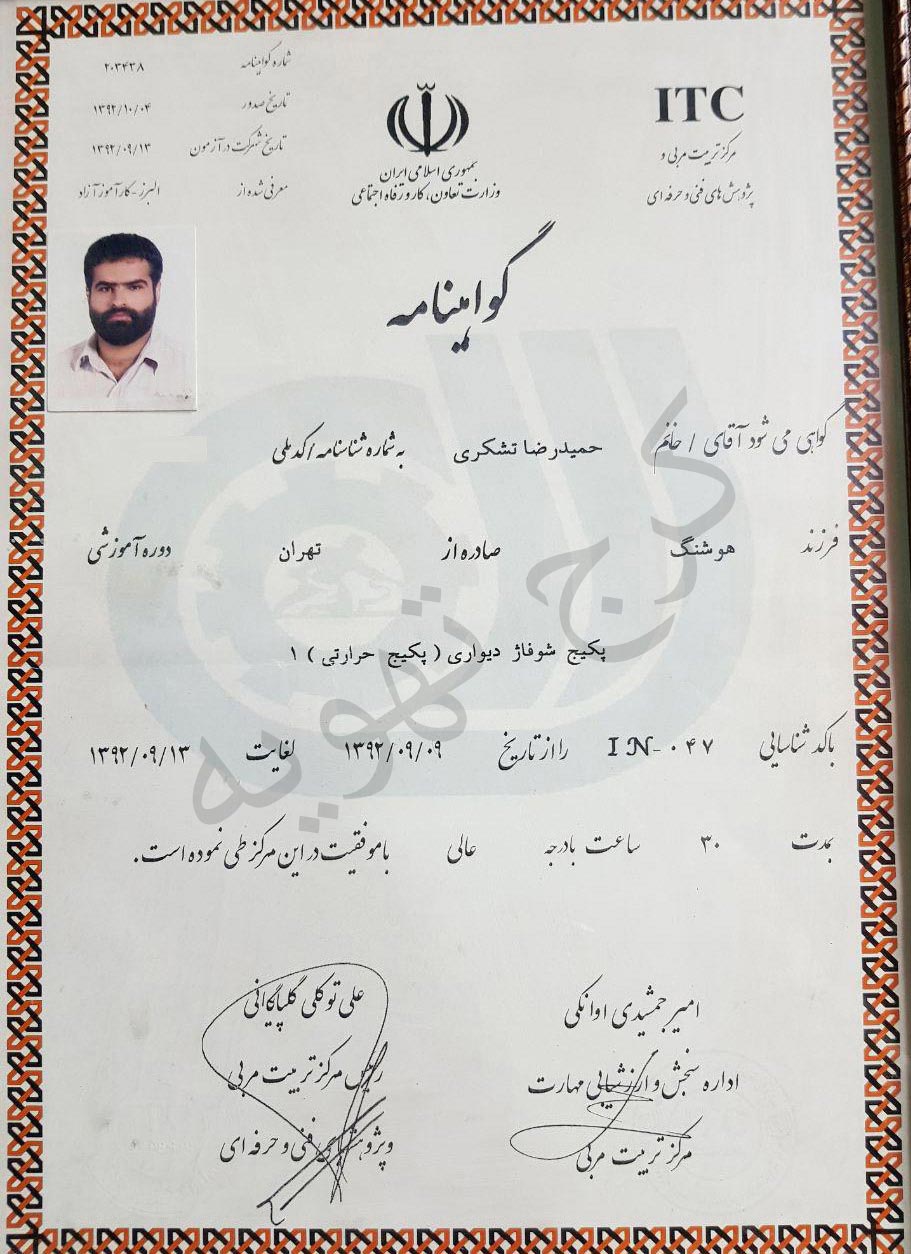 ITC
مرکز تربیت مربی و
پژوهش های فنی و حرفه ای
جمهوری اسلامی ایران
وزارت تعاون، کار و رفاه اجتماعی
شماره گواهینامه ۲۰۳۴۳۸
تاریخ صدور ۱۳۹۲/۱۰/۰۴
تاریخ شرکت در آزمون ۱۳۹۲/۰۹/۱۳
معرفی شده از البرز-کارآموز آزاد
گواهینامه
گواهی می شود آقای / خانم حمیدرضا تشکری به شماره شناسنامه / کد ملی
فرزند هوشنگ صادره از تهران دوره آموزشی
پکیج شوفاژ دیواری ( پکیج حرارتی ) ۱
با کد شناسایی IN-۰۴۷ را از تاریخ ۱۳۹۲/۰۹/۰۹ لغایت ۱۳۹۲/۰۹/۱۳
بمدت ۳۰ ساعت با درجه عالی با موفقیت در این مرکز طی نموده است.
کرج تهویه
امیر جمشیدی اوانکی
اداره سنجش و ارزشیابی مهارت
مرکز تربیت مربی
علی توکلی گلپایگانی
رئیس مرکز تربیت مربی
و پژوهشهای فنی و حرفه ای